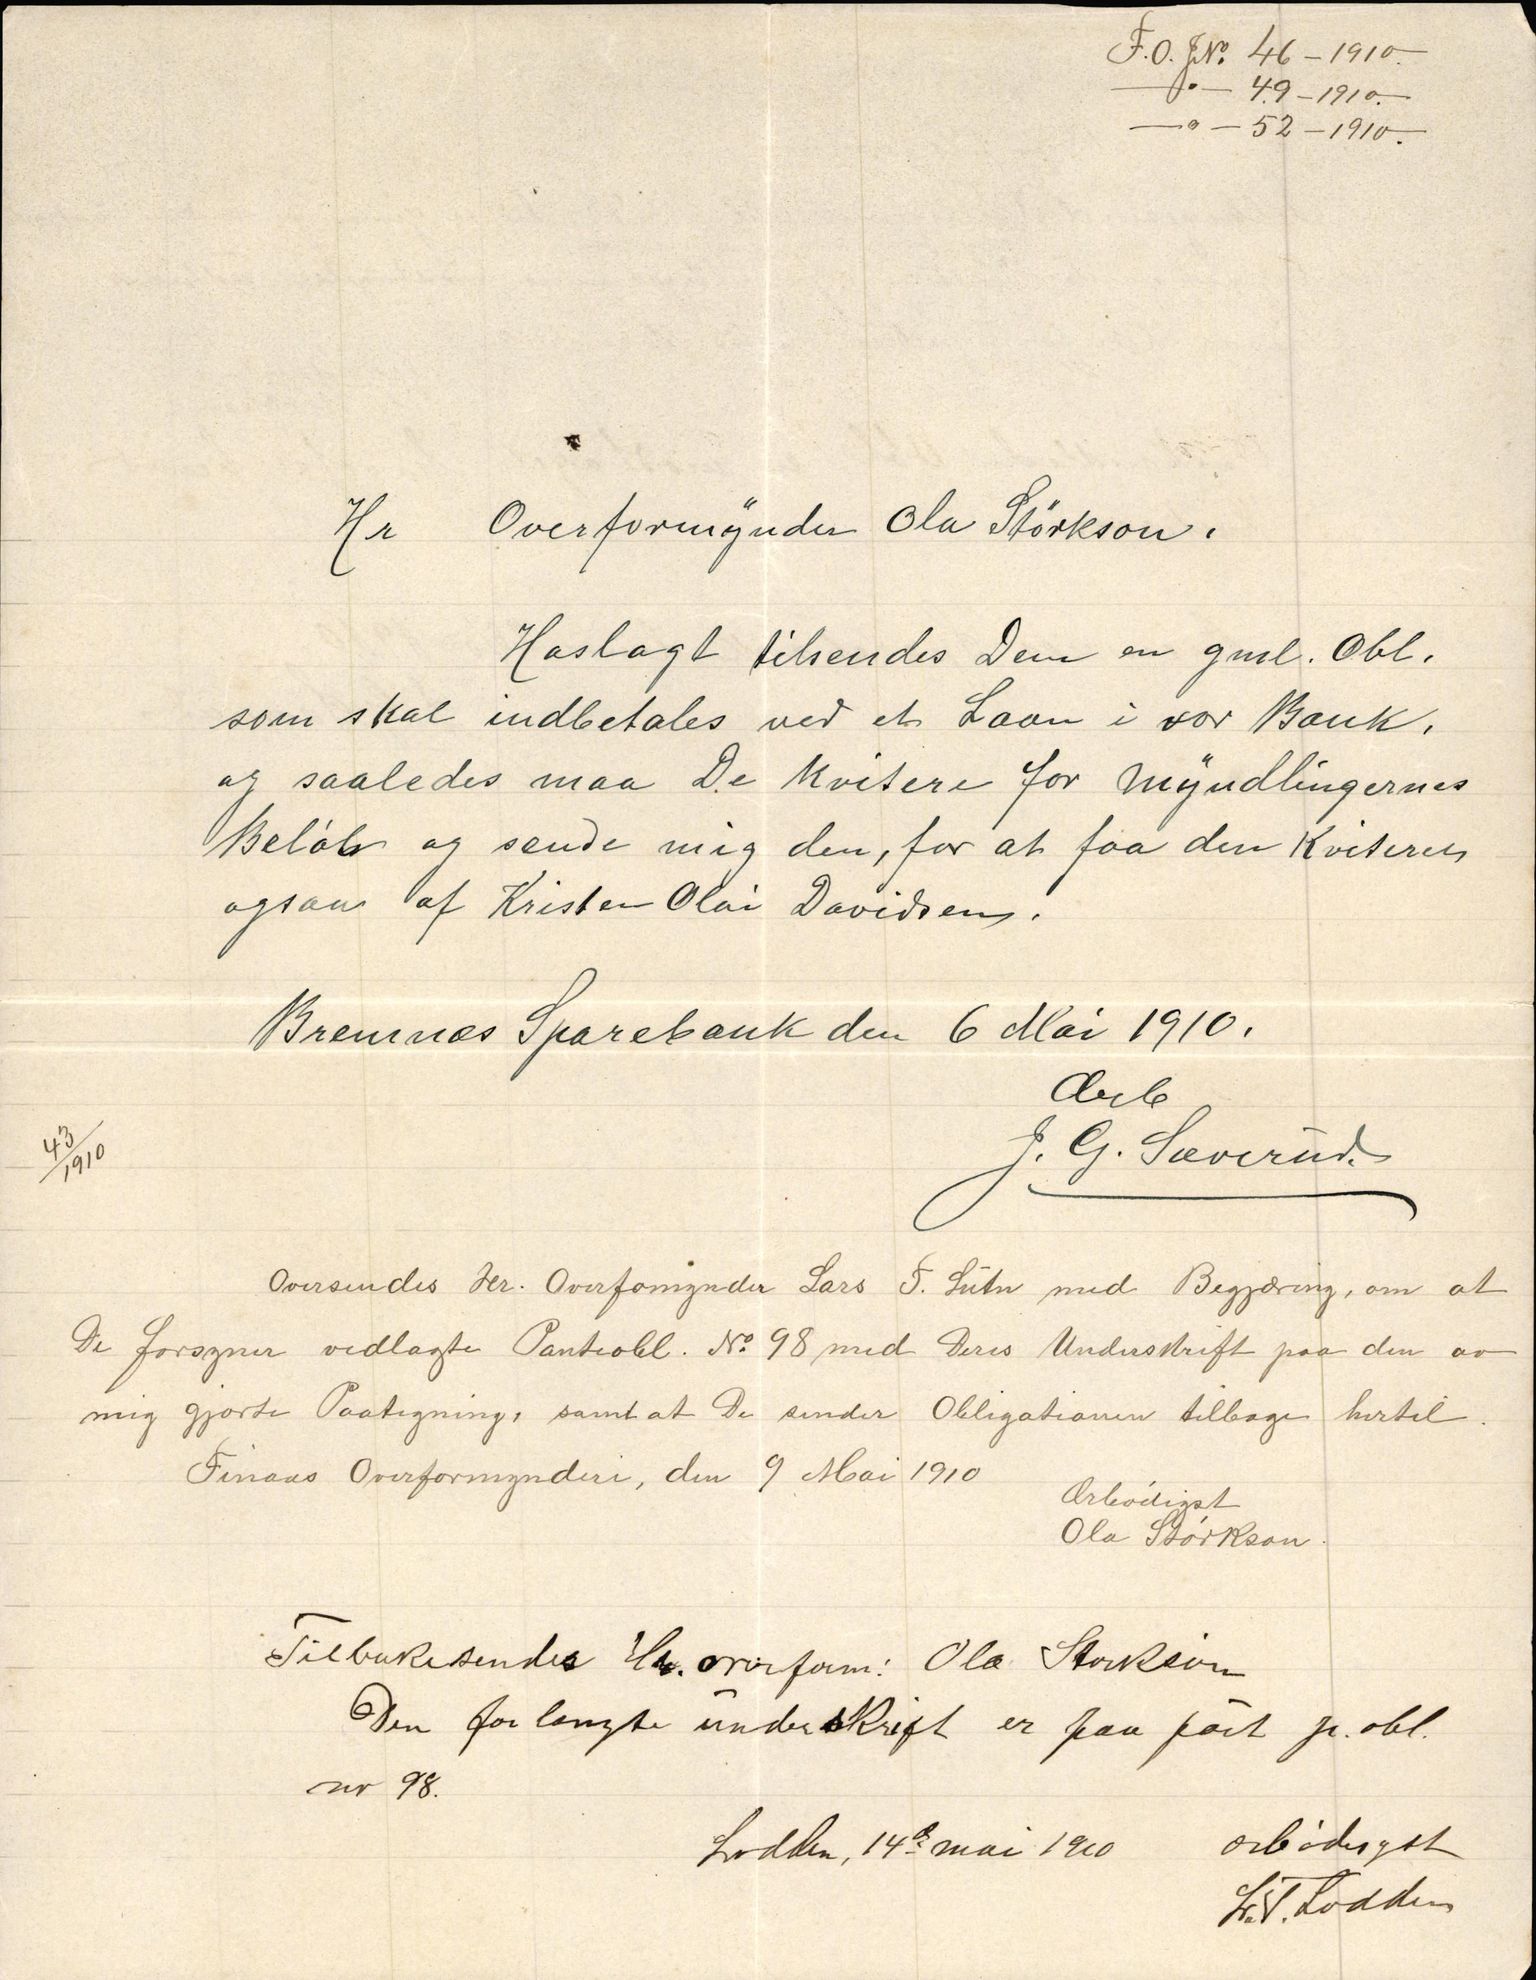 F.O. J.No. 46 – 1910.
—"— 49 – 1910.
—"— 52 – 1910.
Hr Overformÿnder Ola Störkson.
Hoslagt tilsendes Dem en gml. Obl.
som skal indbetales ved et Laan i vor Bank,
og saaledes maa De kvitere for Mÿndlingernes
Beløb og sende mig den, for at faa den kviteret
ogsaa af Kristen Olai Davidsen.
Bremnes Sparebank den 6 Mai 1910.
Ærb
J. G. Sæverud.
43/1910
Oversendes Hr. Overfomynder Lars T. with Begjæring, om at
De forsyner vedlagte Panteobl. No. 98 med Deres Underskrift paa den av
mig gjorte Paategning, samt at De sender Obligationen tilbage hertil.
Finaas Overformynderi, den 9 Mai 1910
Ærbødigst
Ola Störkson.
Tilbakesendes Hr. overform: Ola Storkson
Den forlangte underskrift er paa ført p. obl.
nr 98.
Lodden, 14de mai 1910 ærbødigst
L. T. Lodden